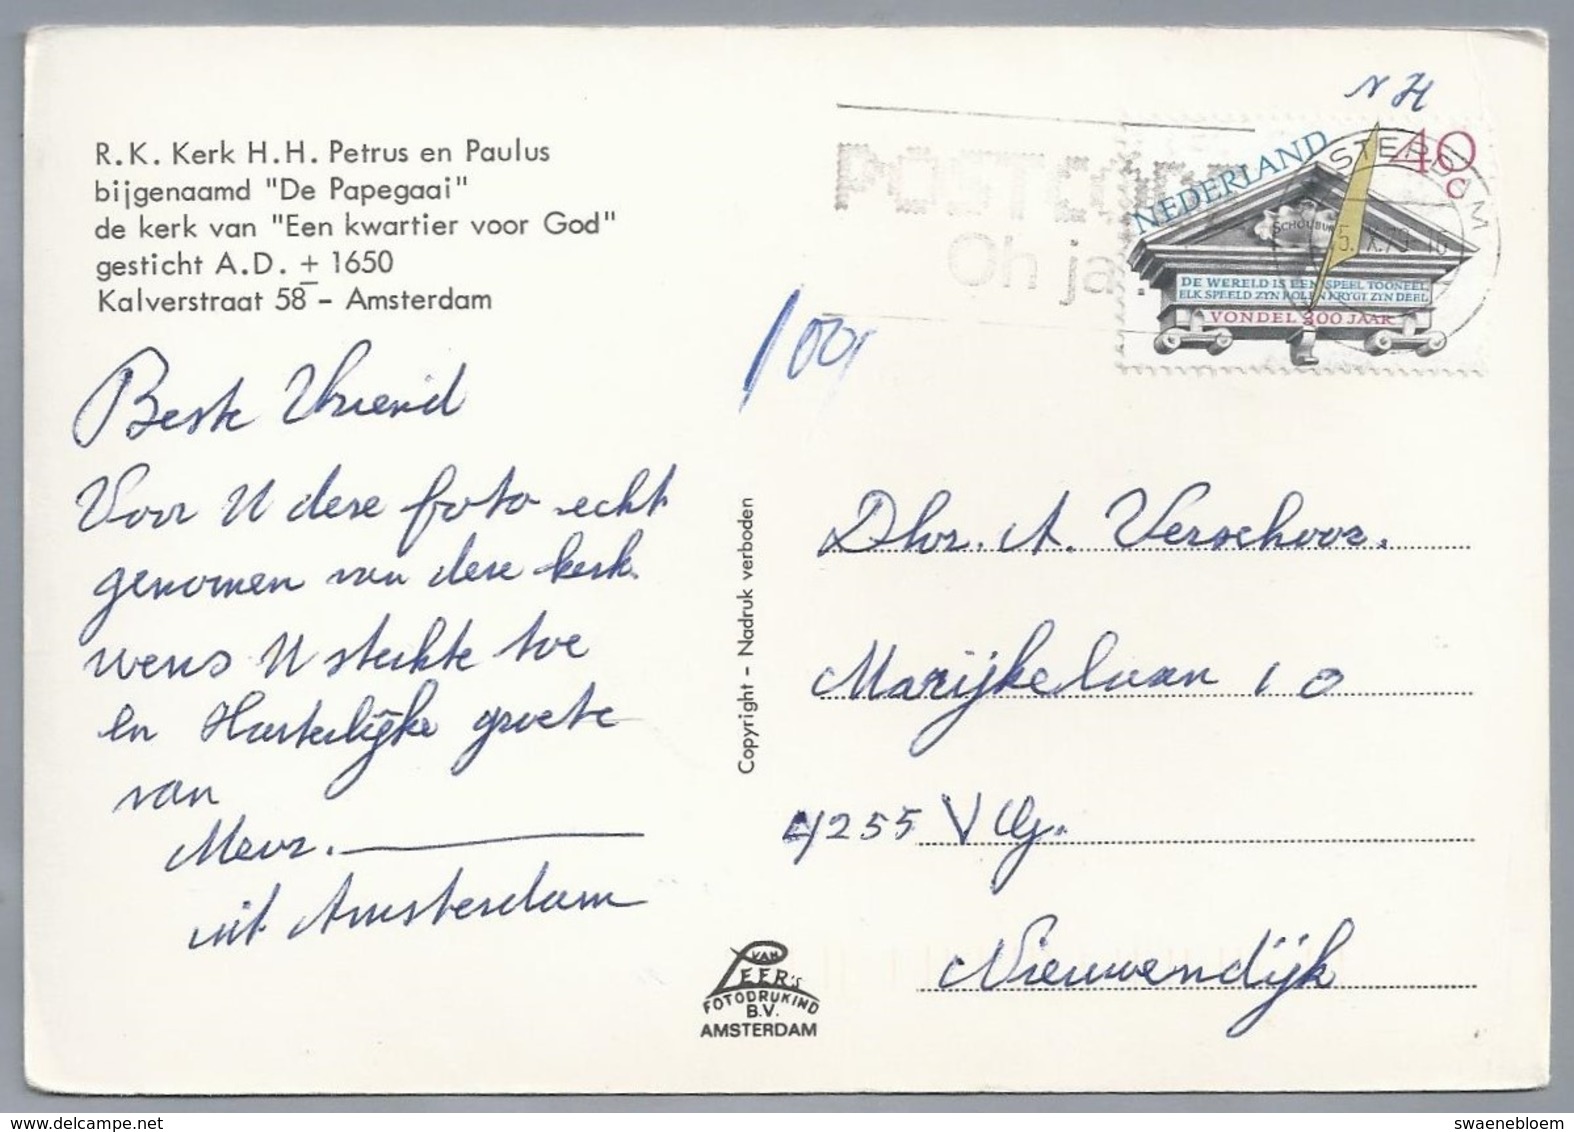 R.K. Kerk H.H. Petrus en Paulus
bijgenaamd "De Papegaai"
de kerk van "Een kwartier voor God"
gesticht A.D. ± 1650
Kalverstraat 58 - Amsterdam
Beste Vriend
Voor U dese foto echt
genomen van dese kerk.
wens U sterkte toe
en Hartelijke groete
van
uit Amsterdam
Copyright - Nadruk verboden
VAN
LEER'S
FOTODRUKIND
B.V.
AMSTERDAM
N H
NEDERLAND
40
c
SCHOUBURG
DE WERELD IS EEN SPEEL TOONEEL
ELK SPEELD ZYN ROL EN KRYGT ZYN DEEL
VONDEL 300 JAAR
POSTCODE
Oh ja!
100,
Dhr. A. Verschoor.
Marijkelaan 10
4255 V
Nieuwendijk
swaenebloem
delcampe.net